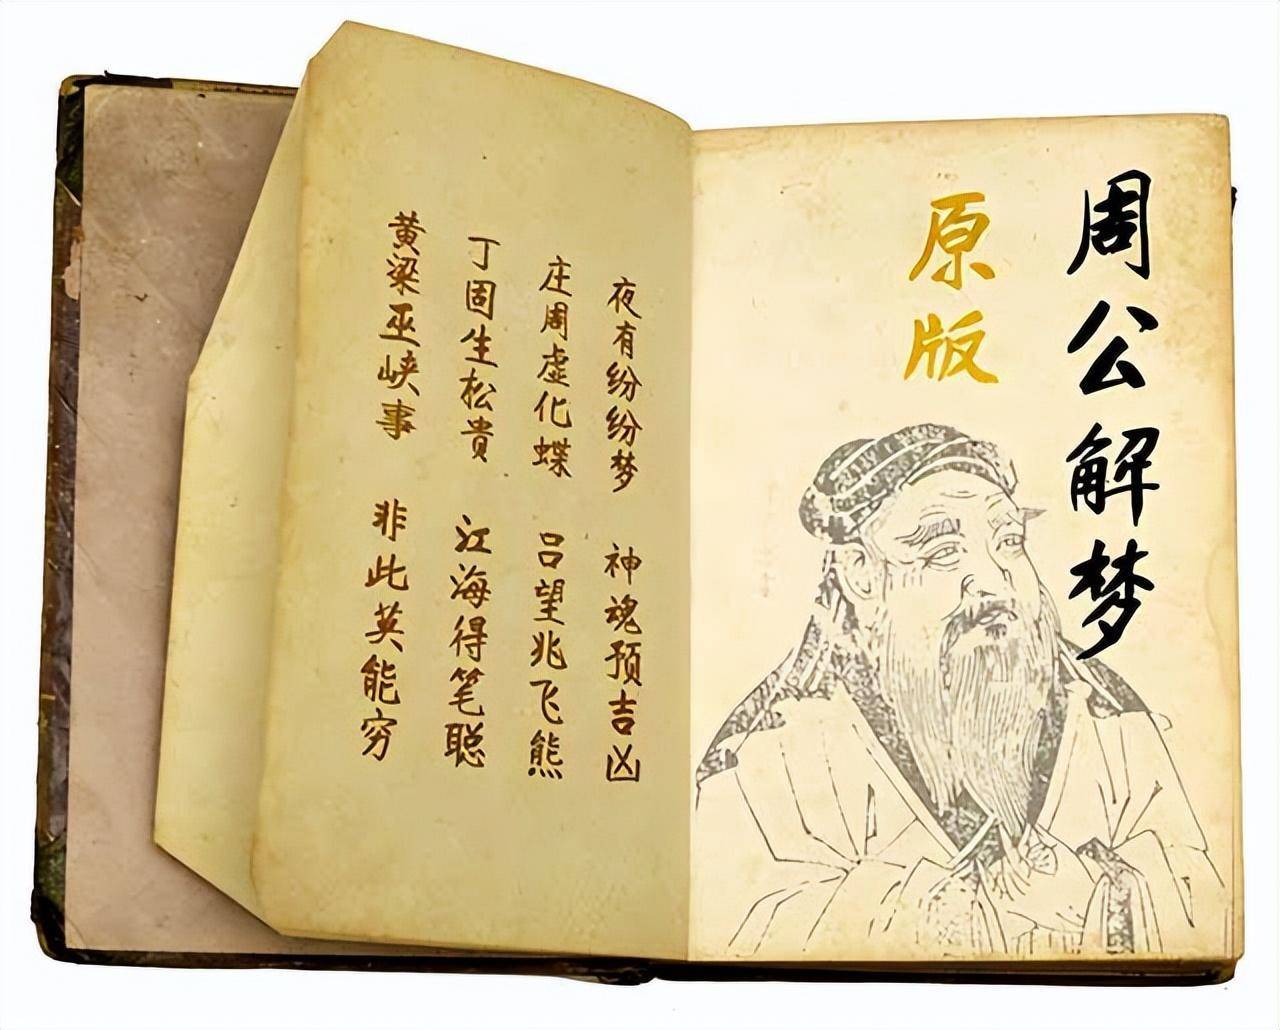 周公解梦
原版
夜有纷纷梦 神魂预吉凶
庄周虚化蝶 吕望兆飞熊
丁固生松贵 江海得笔聪
黄梁巫峡事 非此英能穷